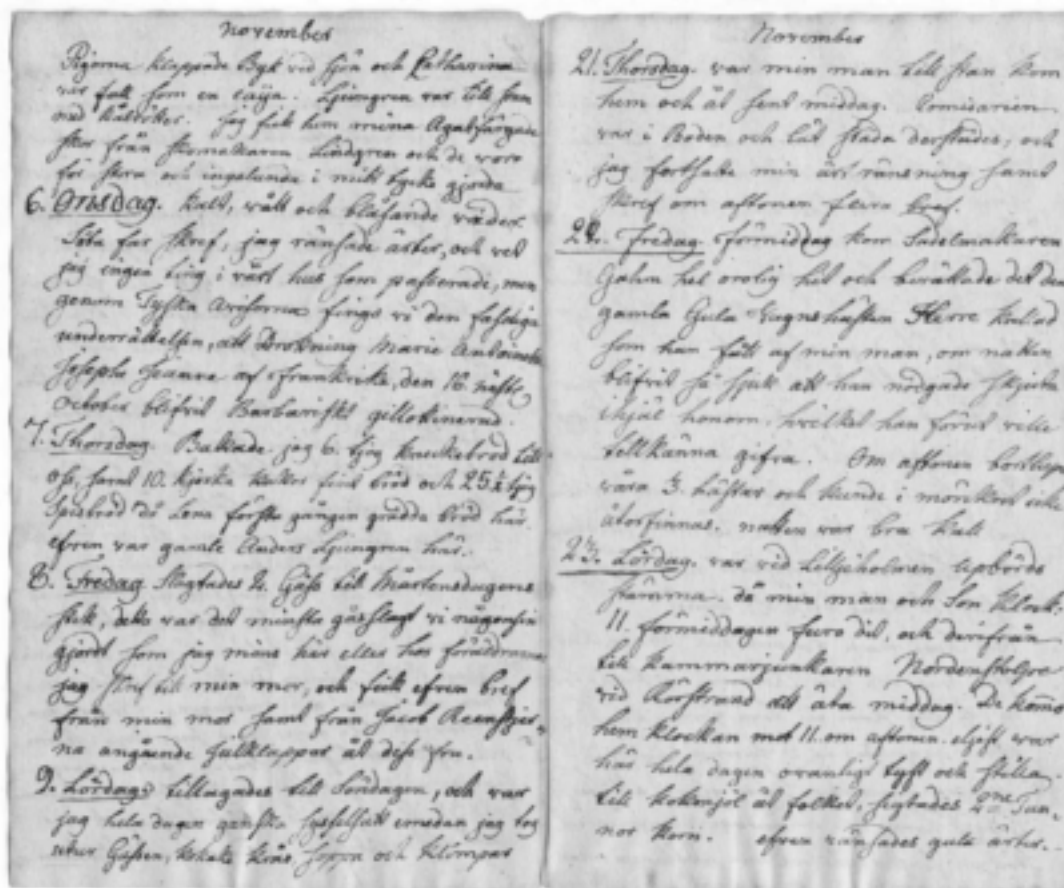 November
Pigorna klappade Byk vid sjön och Catharina
var full som en kaija. Ljungren var till stan
med källröker. Jag fick hem mina Agatfärgade
skor från skomakaren Lindgren och de voro
för stora och ingalunda i mitt tycke gjorda
6. Onsdag. kalt, vått och blåsande väder.
Söta far skref, jag ränsade ärter, och vet
jag ingen ting i vårt hus som passerade, men
genom Tyska Aviserna fingo vi den faseliga
underrättelsen, att Drottning Marie Antoinette
Josepha Jeanne af Frankrike, den 16. näst
October blifvit Barbariskt gillotinerad.
7. Thorsdag. Bakade jag 6. tjog kneckebröd till
oss, samt 10. kakor fint bröd och 25½ tjog
spisbröd då Lena första gången grädda bröd här.
efren var gamle Anders Ljungren här.
8. Fredag Slagtades 2. Gäss till Mårtensdagens
stek, detta var det minsta gåsslagt vi någonsin
gjordt som jag mins här eller hos föräldrarna
jag skref till min mor, och fick efren bref
från min mor samt från Jacob Reenstjer-
na angående Julklappar åt dess fru.
9. Lördag. tillagades till Söndagen, och var
jag hela dagen ganska sysselsatt emedan jag tog
utur Gåsen, kokade krås soppa och klimpar
November
21. Thorsdag. var min man till stan kom
hem och åt sent middag.
var i Boden och lät städa derstädes, och
jag fortsatte min ärt ränsning samt
skref om aftonen flera bref.
22. Fredag. förmiddag kom Sadelmakaren
Galm hel orolig hit och berättade det den
gamla Gula Vagnshästen Herre kallad
som han fått af min man, om natten
blifvit så sjuk att han nödgades skjuta
ihjäl honom, hvilket han förut ville
tillkänna gifva. Om aftonen bortlupo
våra 3. hästar och kunde i mörkret icke
återfinnas. natten var bra kall
23. Lördag. var vid Liljeholmen upbörds
stämma. då min man och Son klock.
11. förmiddagen foro dit, och derifrån
till Kammarjunkaren
vid Rörstrand att äta middag. De komo
hem klockan mot 11. om aftonen. eljest var
här hela dagen ovanligt tyst och stilla,
till åt folket, sigtades 2ne Tun-
nor korn. efren ränsades gula ärter.